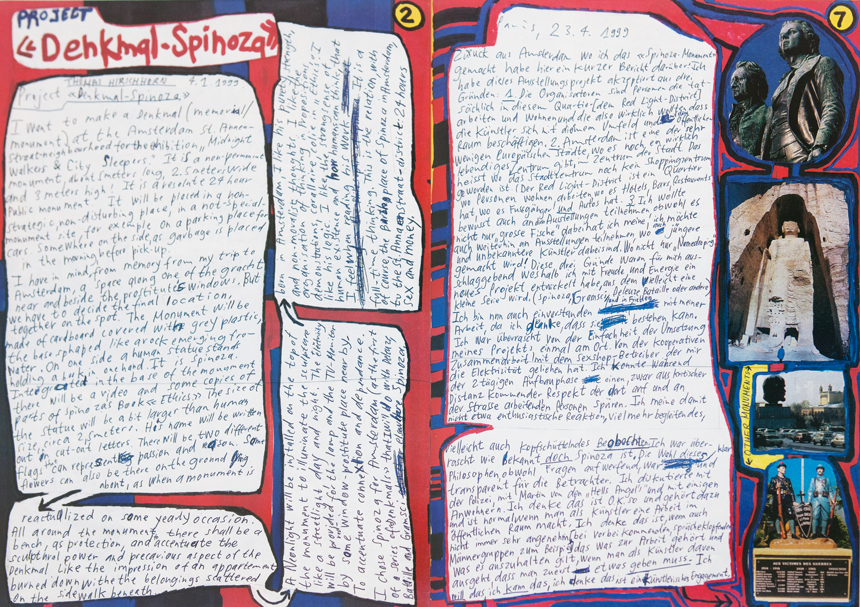 PROJECT
«Denkmal-Spinoza»
2
THOMAS HIRSCHHORN 4.1.1999
Project «Denkmal-Spinoza»
I Want to make a Denkmal (memorial/
monument) at the Amsterdam St. Annen-
street-neighbourhood for the exhibition, "Midnight
Walkers & City Sleepers." It is a non-permanent
monument, about 5 meters long, 2.5 meters Wide
and 3 meters high! It is a resolute 24 hours
Public monument! It will be placed in a non-
strategic, non-disturbing place, in a not-special-
monument site, for example on a parking place for
cars. Somewhere on the side, as garbage is placed
in the morning before pick-up.
I have in mind, from memory from my trip to
Amsterdam, a space along one of the gracht
near and beside the prostitutes windows. But
we have to decide that location
together on the spot. The Monument will be
made of cardboard covered with grey plastic,
the base shaped like a rock emerging from
Water. On one side a human statue stands
holding a book in one hand. It is Spinoza.
in the base of the monument
there will be a video and some copies of
parts of Spinozas Book «Ethics». The size of
the statue will be a bit larger than human
size, circa 2,5 meters. His name will be written
out in cut-out letters. There Will be two different
flags that represent passion and reason. Some
flowers can also be there on the ground
about, as when a monument is
reactualized on some yearly occasion.
All around the monument, there shall be a
bench as protection, and to accentuate the
sculptural power and precarious aspect of the
Denkmal. Like the impression of an appartement
burned down with the belongings scattered
on the sidewalk beneath.
A Neonlight will be installed on the top of
the monument to illuminate this sculpture
like a streetlight day and night. The electricity
will be provided for the lamp and the TV-Monitor
by some Window-prostitute place near by.
To accentuate connexion and dependance.
I chose Spinoza for Amsterdam as the first
of a series of «Denkmals» that I will do with Deleuze,
Bataille and Gramsci. Spinoza,
born in Amsterdam, his power, strength,
and marvelously thought, like
organisation of thinking, propositions,
demonstrations, corollaires, folie in "Ethics." I
like his logic. I like the emergence of
human effort and how nonconcerning that
I feel when reading his Work. It is a
full-time thinking. This is the relation with
of course, the place of Spinoza in Amsterdam,
to the St. Annenstraat-district: 24 hours
sex and money.
7
Paris, 23.4.1999
Zurück aus Amsterdam wo ich das «Spinoza-Monument»
gemacht habe hier ein kurzer Bericht darüber: Ich
habe dieses Ausstellungsprojekt akzeptiert aus drei
Gründen: 1. Die Organisatoren sind Personen die tat-
sächlich in diesem Quartier (dem Red Light-District)
arbeiten und Wohnen und die also wirklich wollten dass
die Künstler sich mit diesem Umfeld und öffentlichen
Raum beschäftigen. 2. Amsterdam ist eine der sehr
wenigen Europäischen Städte wo es noch ein wirklich
lebendiges Zentrum gibt, - Zentrum der Stadt. Das
heisst wo das Stadtzentrum noch kein Shoppingzentrum
geworden ist! (Der Red Light-District ist ein Quartier
wo Personen wohnen, arbeiten wo es Hotels, Bars, Restaurants
hat, wo es Fussgänger und Autos hat. 3. Ich wollte
bewusst auch an Ausstellungen teilnehmen obwohl es
nicht nur grosse Fische dabei hat. Ich möchte
auch weiterhin an Ausstellungen teilnehmen wo jüngere
und unbekanntere Künstler dabei sind. Wo nicht nur
gemacht wird! Diese drei Gründe Waren für mich aus-
schlaggebend weshalb ich mit Freude und Energie ein
neues Projekt entwickelt habe, aus dem vielleicht eine
kleine Serie wird. (Spinoza, Gramsci, Deleuze, Bataille oder andere)
Ich bin nun auch einverstanden mit meiner
Arbeit, da ich denke, dass sie bestehen kann.
Ich War überrascht von der Einfachheit der Umsetzung
meines Projekts einmal am Ort. Von der kooperativen
Zusammenarbeit mit dem Sexshop-Betreiber der mir
die Elektrizität geliehen hat. Ich konnte Während
der 2 tägigen Aufbauphase einen, zwar aus kritischer
Distanz kommender Respekt der dort auf und an
der Strasse arbeitenden Personen Spüren. Ich meine damit
nicht etwa enthusiastische Reaktion, viel mehr begleitendes,
vielleicht auch kopfschüttelndes Beobachten. Ich war über-
rascht wie bekannt doch Spinoza ist, Die Wahl dieses
Philosophen, obwohl Fragen auf werfend, war
transparent für die Betrachter. Ich diskutierte
der Polizei, mit Martin von den «Hells Angels» und mit einigen
Anwohnern. Ich denke das ist O.K. so und gehört dazu
und ist normal wenn man als Künstler eine Arbeit im
Öffentlichen Raum macht. Ich denke das ist, wenn auch
nicht immer sehr angenehm bei vorbeikommenden, sprücheklopfenden
Männergruppen zum Beispiel das was zur Arbeit gehört und
was es auszuhalten gilt, Wenn man als Künstler davon
ausgeht dass man etwas geben muss. Ich
will das, ich kann das, ich denke das ist ein Künstlerisches Engagement.
OTHER MONUMENTS
AUX VICTIMES DES GUERRES